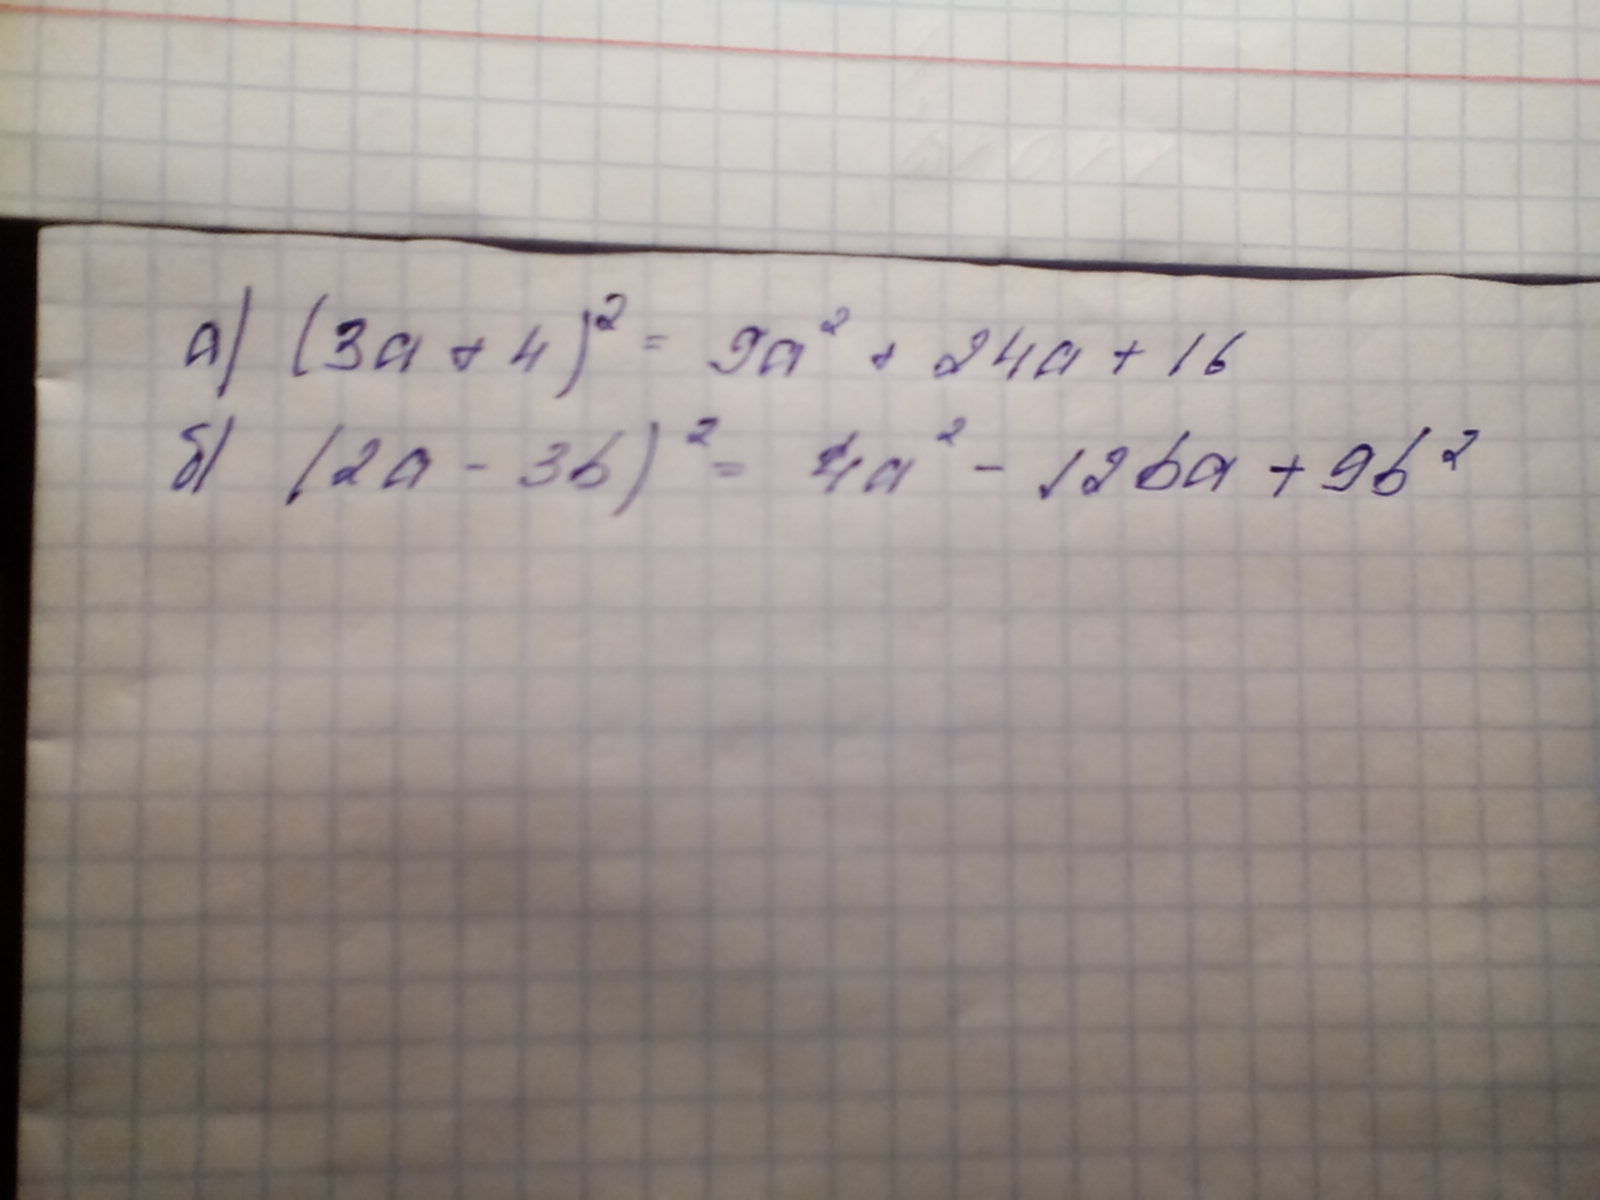 а) (3a + 4)² = 9a² + 24a + 16
б) (2a - 3b)² = 4a² - 12ba + 9b²